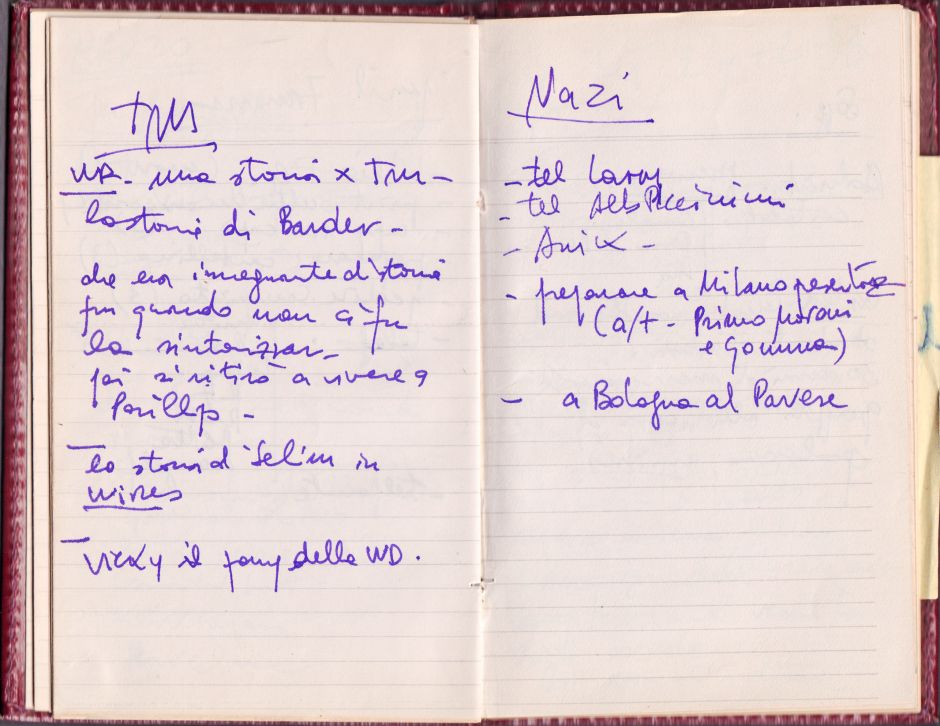 TM
una storia x TM -
la storia di Bander -
che era insegnante di storia
fin quando non ci fu
la
poi si ritirò a vivere a
Posillp -
- la storia di Selim in
wires
- Vicky il della WD.
Nazi
- tel Larry
- tel Alb Piccinini
- Anix -
- preparare a Milano
(a/t - Primo Moroni
e Gomma)
- a Bologna al Pavese